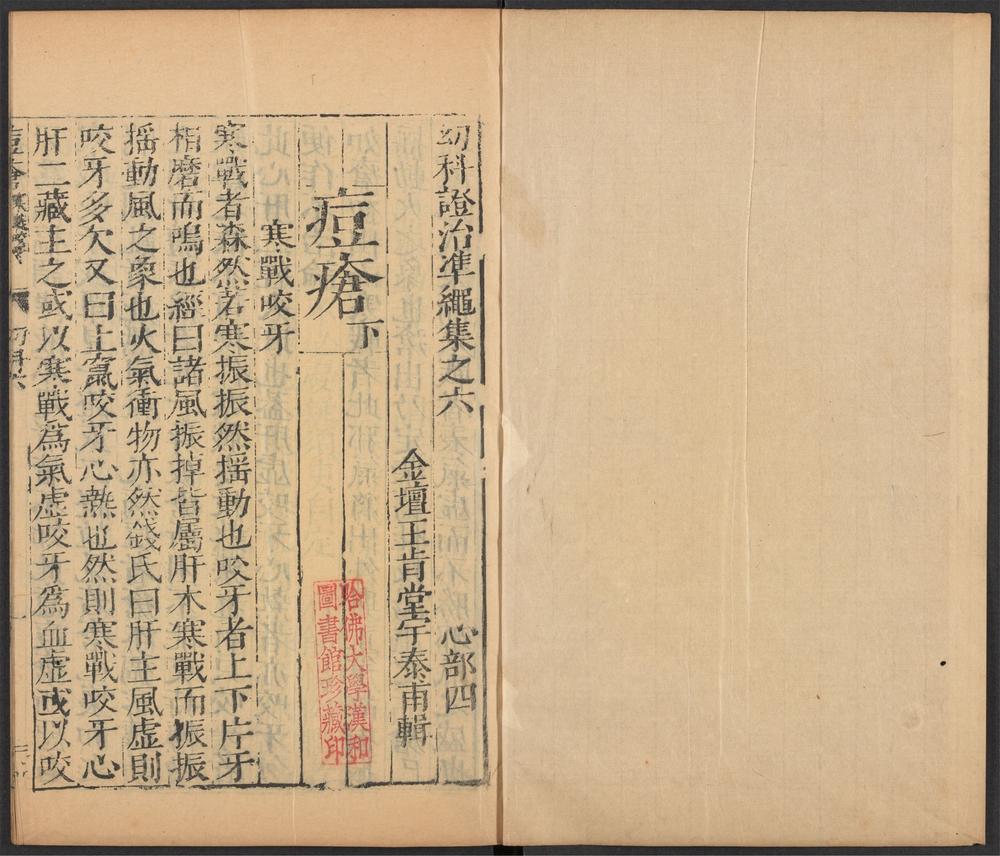 幼科證治準繩集之六　心部四
金壇王肯堂宇泰甫輯
痘瘡下
寒戰咬牙
寒戰者森然若寒振振然揺動也咬牙者上下片牙
相磨而鳴也經曰諸風振掉皆屬肝木寒戰而振振
揺動風之象也火氣衝物亦然錢氏曰肝主風虛則
咬牙多欠又曰上竄咬牙心熱也然則寒戰咬牙心
肝二藏主之或以寒戰爲氣虛咬牙爲血虛或以咬
哈佛大學漢和
圖書館珍藏印